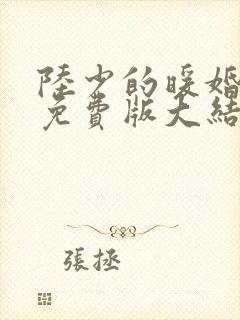 陸少的暖婚
免費版大結
張拯